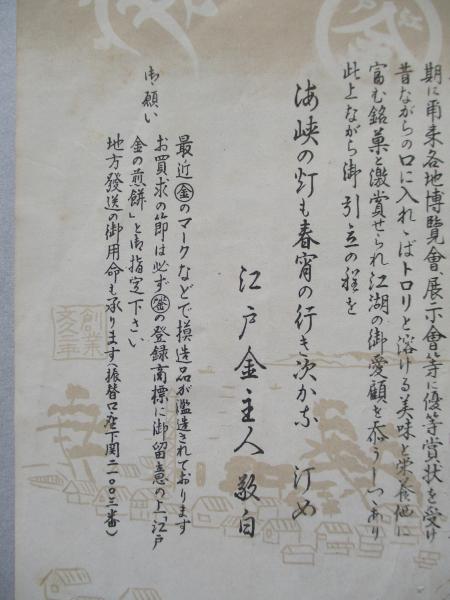 期に爾来各地博覧會、展示會等に優等賞状を受け
昔ながらの口に入れゝばトロリと溶ける美味と栄養価に
富む銘菓と激賞せられ江湖の御愛顧を忝うしつゝあり
此上ながら御引立の程を
海峡の灯も春宵の行き次かな 汀め
江戸金主人敬白
御願い
最近㊎のマークなどで模造品が濫造されております
お買求の節は必ずの登録商標に御留意の上「江戸
金の煎餅」と御指定下さい
地方発送の御用命も承ります(振替口座下関二一〇〇三番)
創業
文久二年
江戸